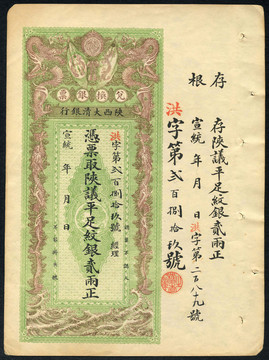 存根
存陝議平足紋銀貳兩正
宣統 年 月 日洪字第二百八十九號
洪字第貳百捌拾玖號
兌換銀票
陝西大清銀行
洪字第貳百捌拾玖號 經理
憑票取陝議平足紋銀貳兩正
宣統 年 月 日